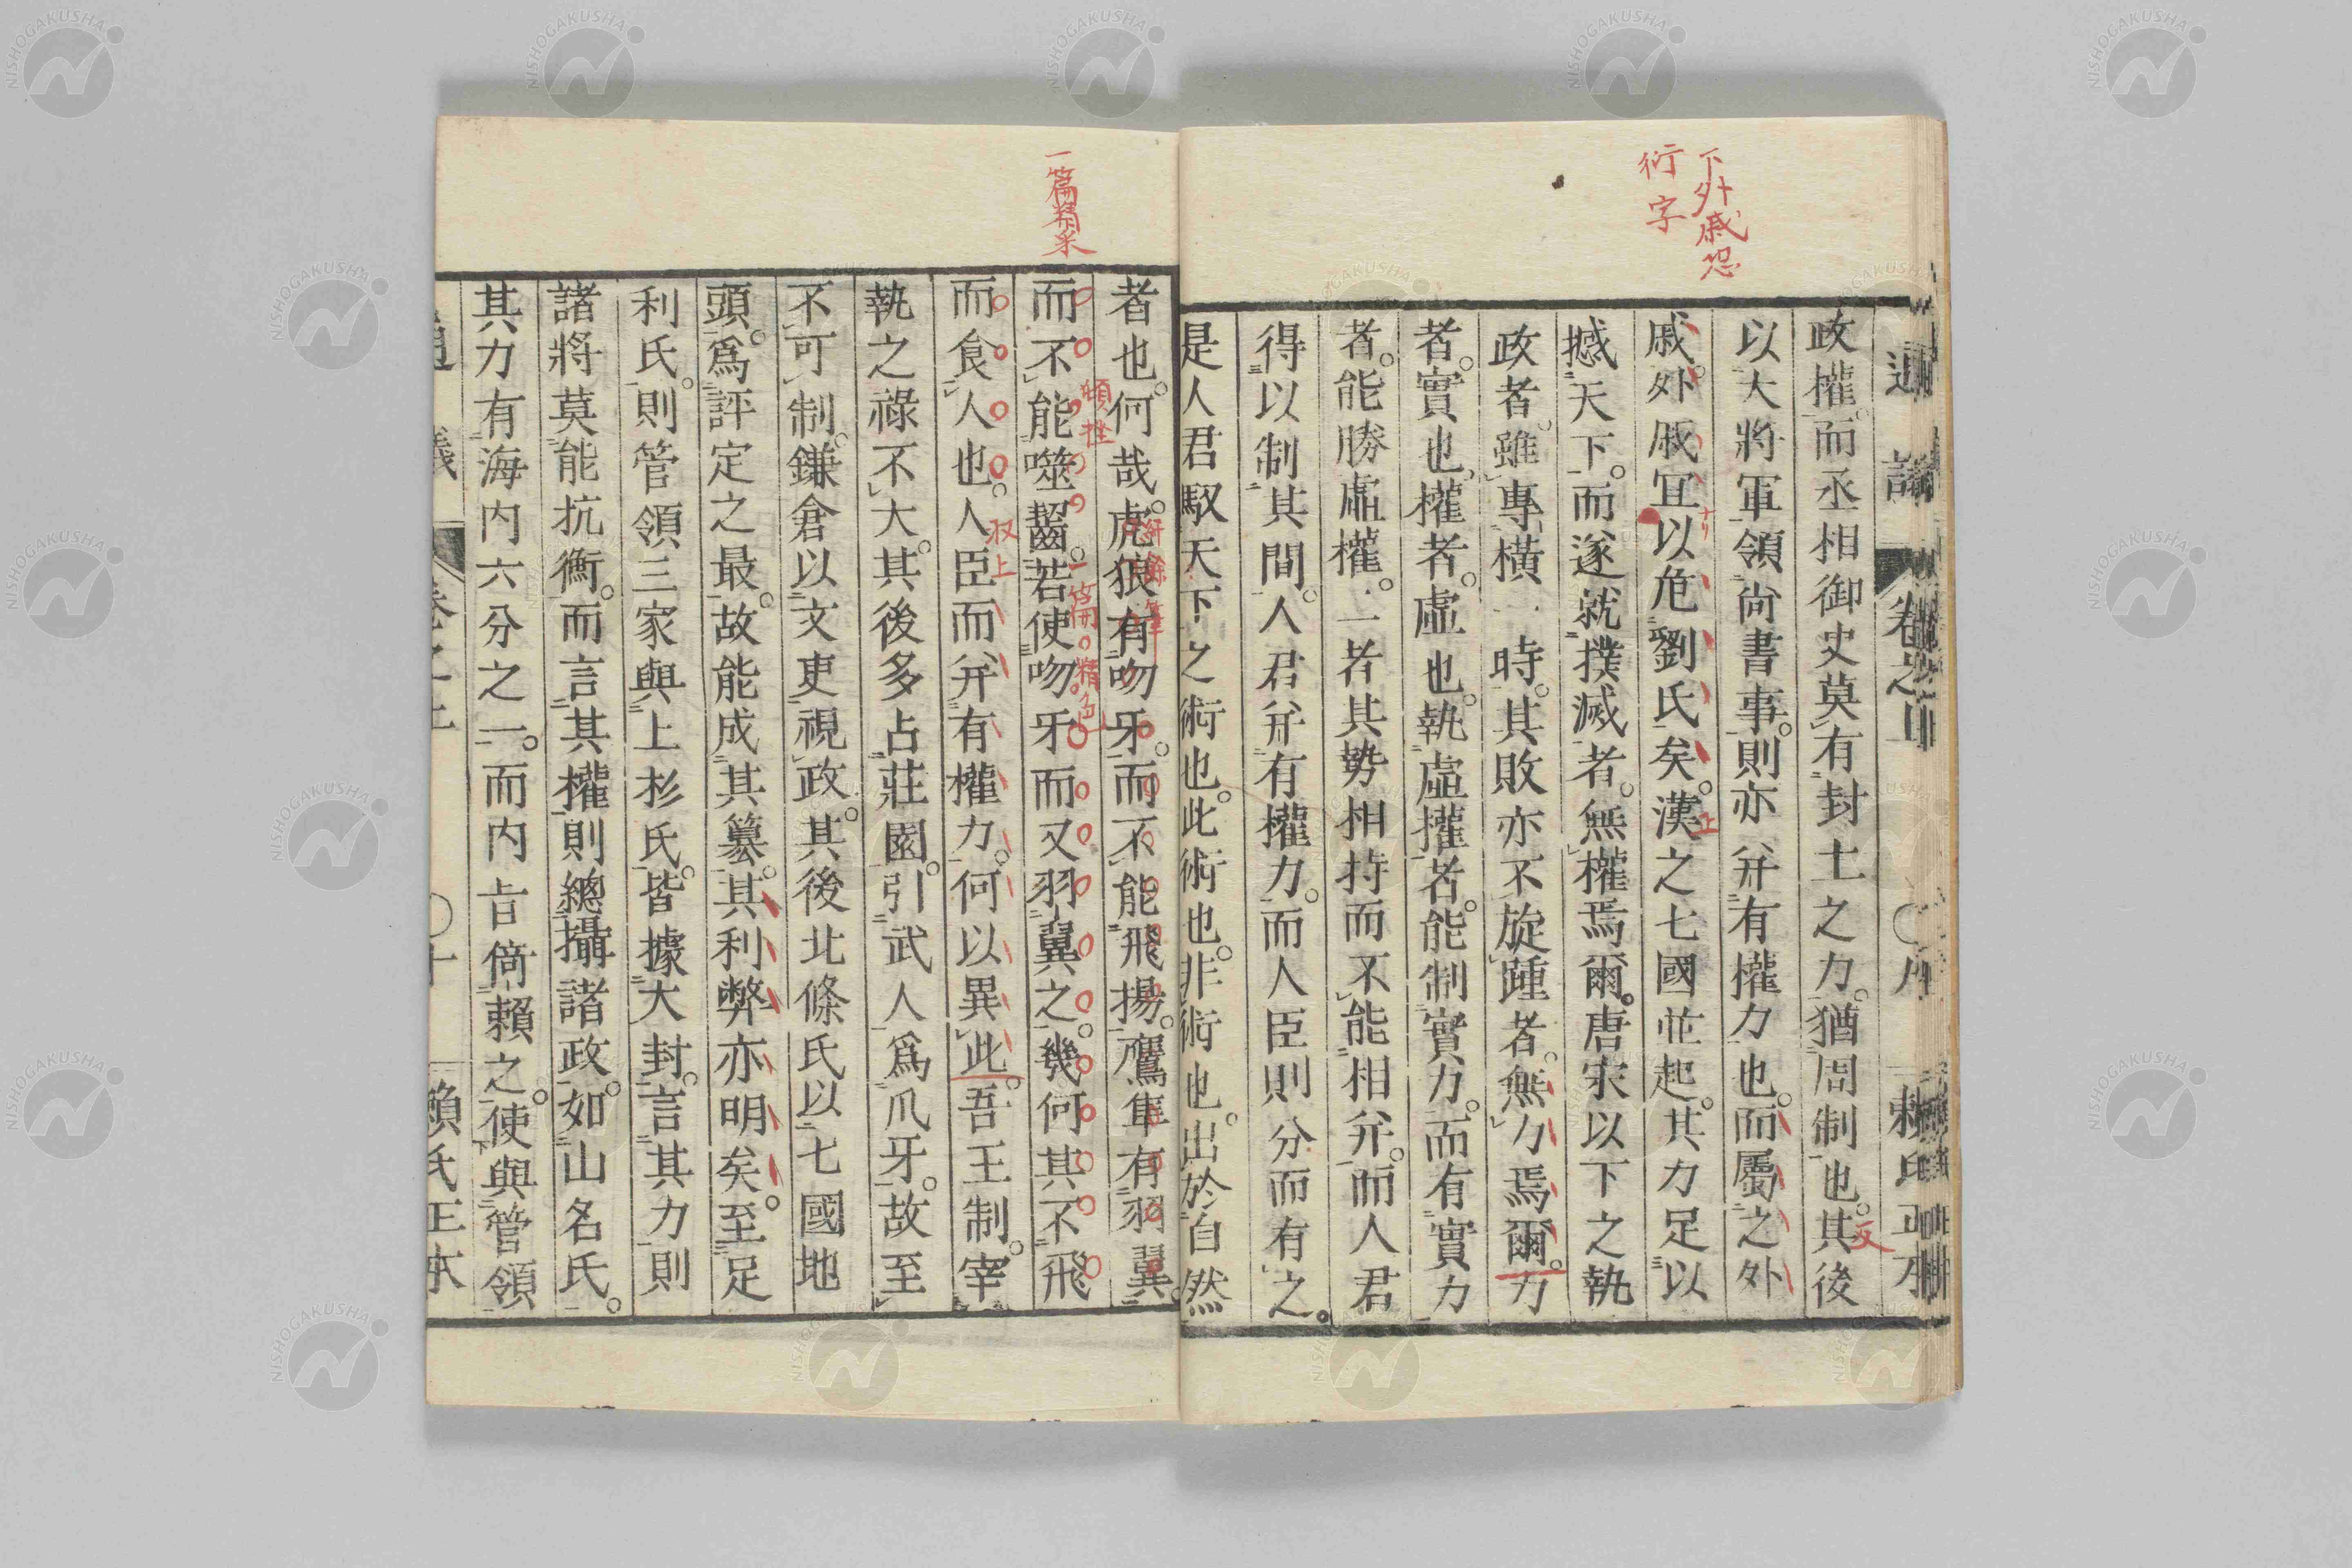 下外戚恐
衍字
通議 卷之上 賴氏正本
政權。而丞相御史莫有封土之力。猶周制也。其後
反
以大將軍領尙書事。則亦幷有權力也。而屬之外
戚。外戚冝以危劉氏矣。漢之七國並起。其力足以
ナリ
上
撼天下。而遂就撲滅者。無權焉爾。唐宋以下之執
政者。雖專橫一時。其敗亦不旋踵者。無力焉爾。力
者。實也。權者。虛也。執虛權者。能制實力。而有實力
者。能勝虛權。二者其勢相持而不能相幷。而人君
得以制其間。人君幷有權力。而人臣則分而有之。
是人君馭天下之術也。此術也。非術也。出於自然
一篇精采
者也。何哉。虎狼有吻牙。而不能飛揚。鷹隼有羽翼。
而不能噬齧。若使吻牙而又羽翼之。幾何其不飛
一篇精色
而食人也。人臣而幷有權力。何以異此。吾王制。宰
収上
執之祿不大。其後多占莊園。引武人爲爪牙。故至
不可制。鎌倉以文吏視政。其後北條氏以七國地
頭。爲評定之最。故能成其簒。其利弊亦明矣。至足
利氏。則管領三家與上杉氏。皆據大封。言其力則
諸將莫能抗衡。而言其權則總攝諸政。如山名氏。
其力有海内六分之一。而内㫖倚賴之。使與管領
通議 卷之上 〇十 賴氏正本